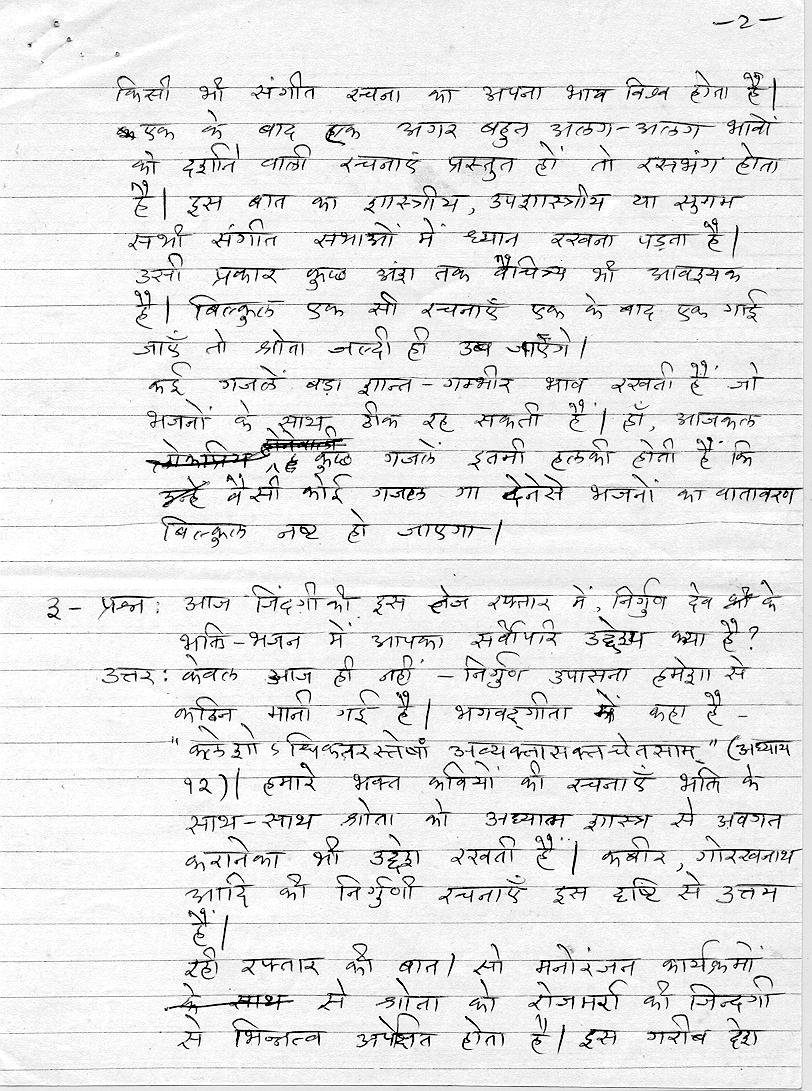 -2-
किसी भी संगीत रचना का अपना भाव विश्व होता है|
एक के बाद एक अगर बहुत अलग-अलग भावों
को दर्शाने वाली रचनाएँ प्रस्तुत हों तो रसभंग होता
है| इस बात का शास्त्रीय, उपशास्त्रीय या सुगम
सभी संगीत सभाओं में ध्यान रखना पड़ता है|
उसी प्रकार कुछ अंश तक वैचित्र्य भी आवश्यक
है| बिल्कुल एक सी रचनाएँ एक के बाद एक गाई
जाएँ तो श्रोता जल्दी ही उब जाएँगे|
कई गजलें बड़ा शान्त-गम्भीर भाव रखती हैं जो
भजनों के साथ ठीक रह सकती हैं| हाँ, आजकल
कुछ गजलें इतनी हलकी होती हैं कि
वैसी कोई गजल गा देनेसे भजनों का वातावरण
बिल्कुल नष्ट हो जाएगा|
३- प्रश्न: आज जिंदगी की इस तेज रफ्तार में, निर्गुण देव के
भक्ति-भजन में आपका सर्वोपरि उद्देश्य क्या है?
उत्तर: केवल आज ही नहीं - निर्गुण उपासना हमेशा से
कठिन मानी गई है| भगवद्गीता में कहा है -
"क्लेशोऽधिकतरस्तेषां अव्यक्तासक्तचेतसाम्" (अध्याय
१२)| हमारे भक्त कवियों की रचनाएँ भक्ति के
साथ-साथ श्रोता को अध्यात्म शास्त्र से अवगत
करानेका भी उद्देश रखती हैं| कबीर, गोरखनाथ
आदि की निर्गुणी रचनाएँ इस दृष्टि से उत्तम
हैं|
रही रफ्तार की बात| सो मनोरंजन कार्यक्रमों
से श्रोता को रोजमर्रा की जिन्दगी
से भिन्नत्व अपेक्षित होता है| इस गरीब देश